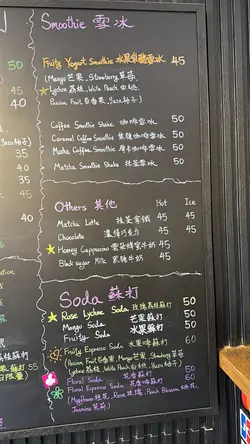 Smoothie 雪冰
Fruity Yogurt Smoothie 水果乳酪雪冰 45
(Mango 芒果, Strawberry 草莓
Lychee 荔枝, White Peach 白桃,
Passion Fruit 百香果, Yuzu 柚子)
Coffee Smoothie Shake 咖啡雪冰 50
Caramel Coffee Smoothie 焦糖咖啡雪冰 50
Mocha Coffee Smoothie 摩卡咖啡雪冰 50
Matcha Smoothie Shake 抹茶雪冰 50
50
45
40
35
40
Others 其他 Hot Ice
Matcha Latte 抹茶拿鐵 45 45
Chocolate 濃情巧克力 45 45
Honey Cappuccino 雲朵蜂蜜牛奶 45
Black sugar Milk 黑糖牛奶 45
Soda 蘇打
Rose Lychee Soda 玫瑰荔枝蘇打 50
Mango Soda 芒果蘇打 50
Fruity Soda 水果蘇打 50
Fruity Espresso Soda 水果咖啡蘇打 60
(Passion Fruit 百香果, Mango 芒果, Strawberry 草莓
Lychee 荔枝, White Peach 白桃, Yuzu 柚子)
Floral Soda 花香蘇打 50
Floral Espresso Soda 花香咖啡蘇打 60
Rose 玫瑰, Peach Blossom 桃花,
Jasmine 茉莉)